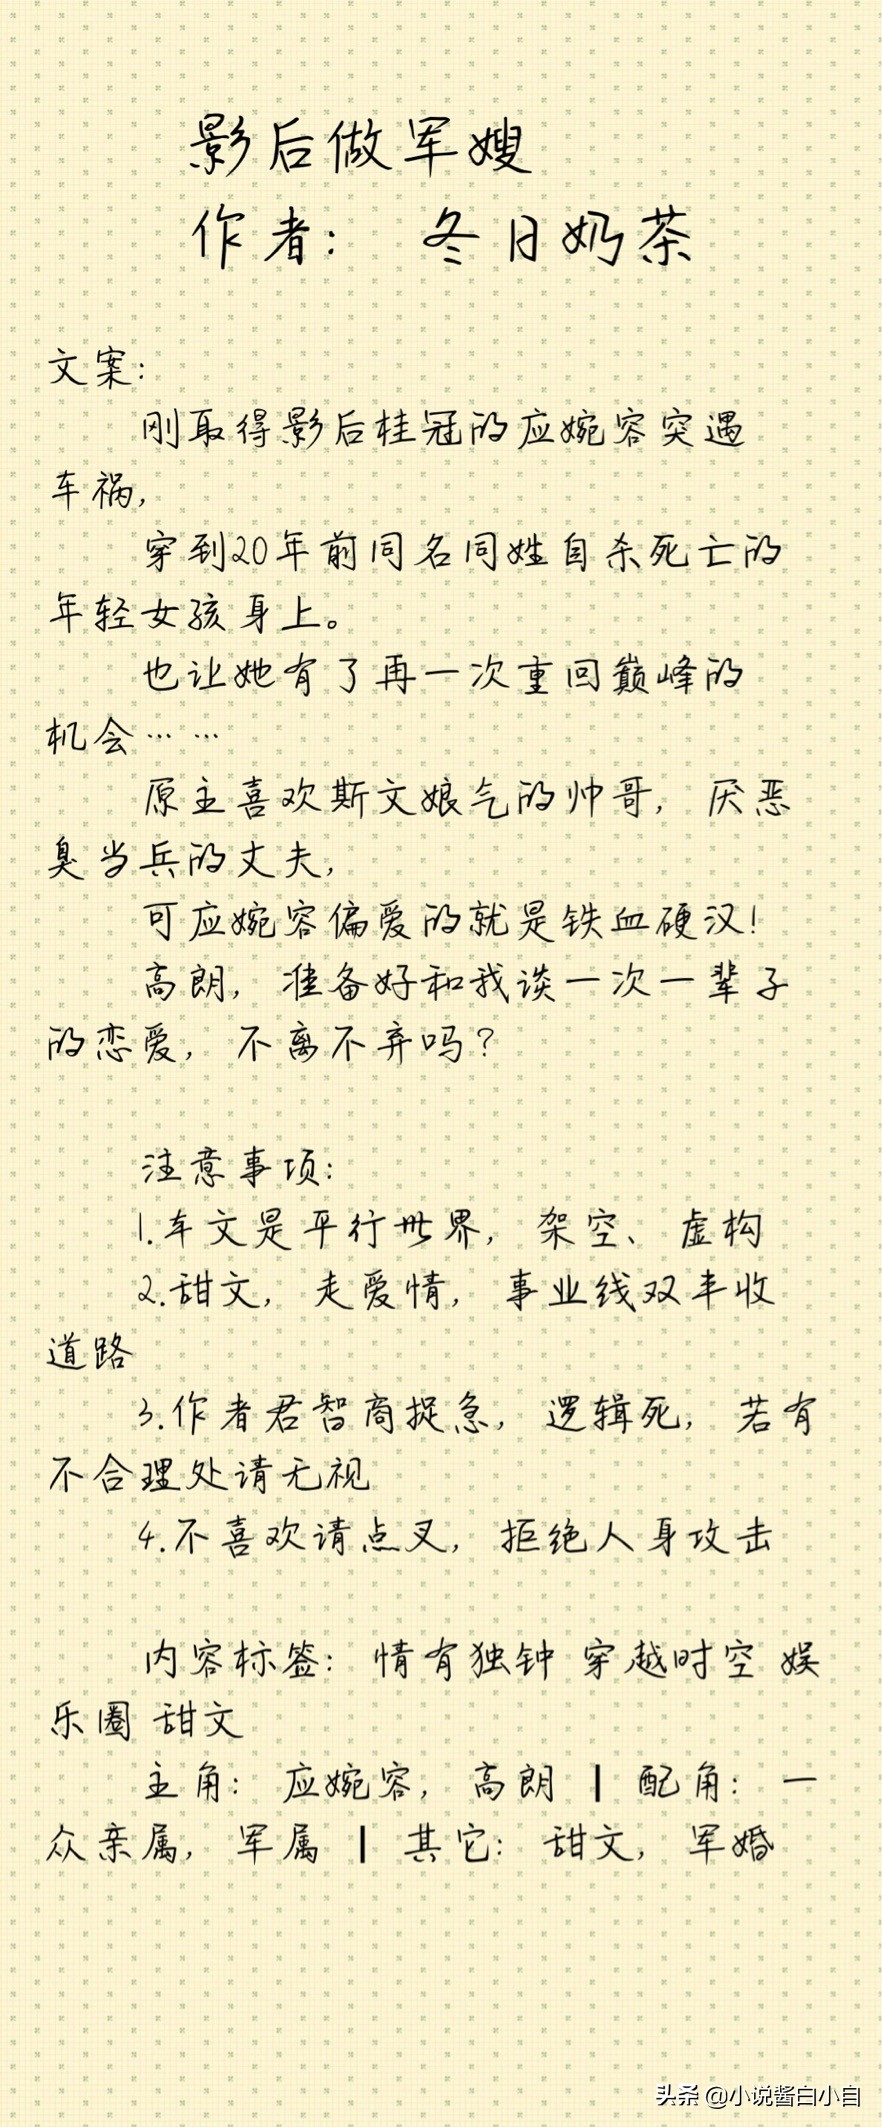 影后做军嫂
作者： 冬日奶茶
文案：
刚取得影后桂冠的应婉容突遇
车祸，
穿到20年前同名同姓自杀死亡的
年轻女孩身上。
也让她有了再一次重回巅峰的
机会……
原主喜欢斯文娘气的帅哥，厌恶
臭当兵的丈夫，
可应婉容偏爱的就是铁血硬汉！
高朗，准备好和我谈一次一辈子
的恋爱，不离不弃吗？
注意事项：
1.车文是平行世界，架空、虚构
2.甜文，走爱情，事业线双丰收
道路
3.作者君智商捉急，逻辑死，若有
不合理处请无视
4.不喜欢请点叉，拒绝人身攻击
内容标签：情有独钟 穿越时空 娱
乐圈 甜文
主角：应婉容，高朗 ┃ 配角：一
众亲属，军属 ┃ 其它：甜文，军婚
头条 @小说酱白小白